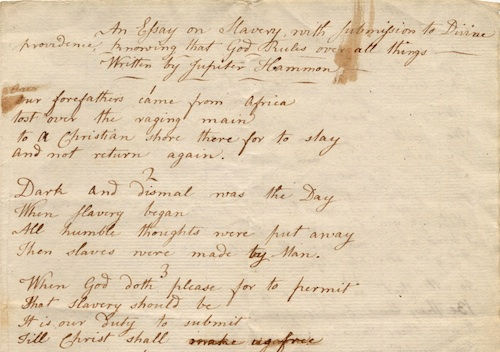 An Essay on Slavery, with submission to Divine
providence, knowing that God Rules over all things
Written by Jupiter Hammon
Our forefathers came from Africa
tost over the raging main
to a Christian shore there for to stay
and not return again.
2
Dark and dismal was the Day
When slavery began
All humble thoughts were put away
Then slaves were made by Man.
3
When God doth please for to permit
That slavery should be
It is our duty to submit
Till Christ shall make us free